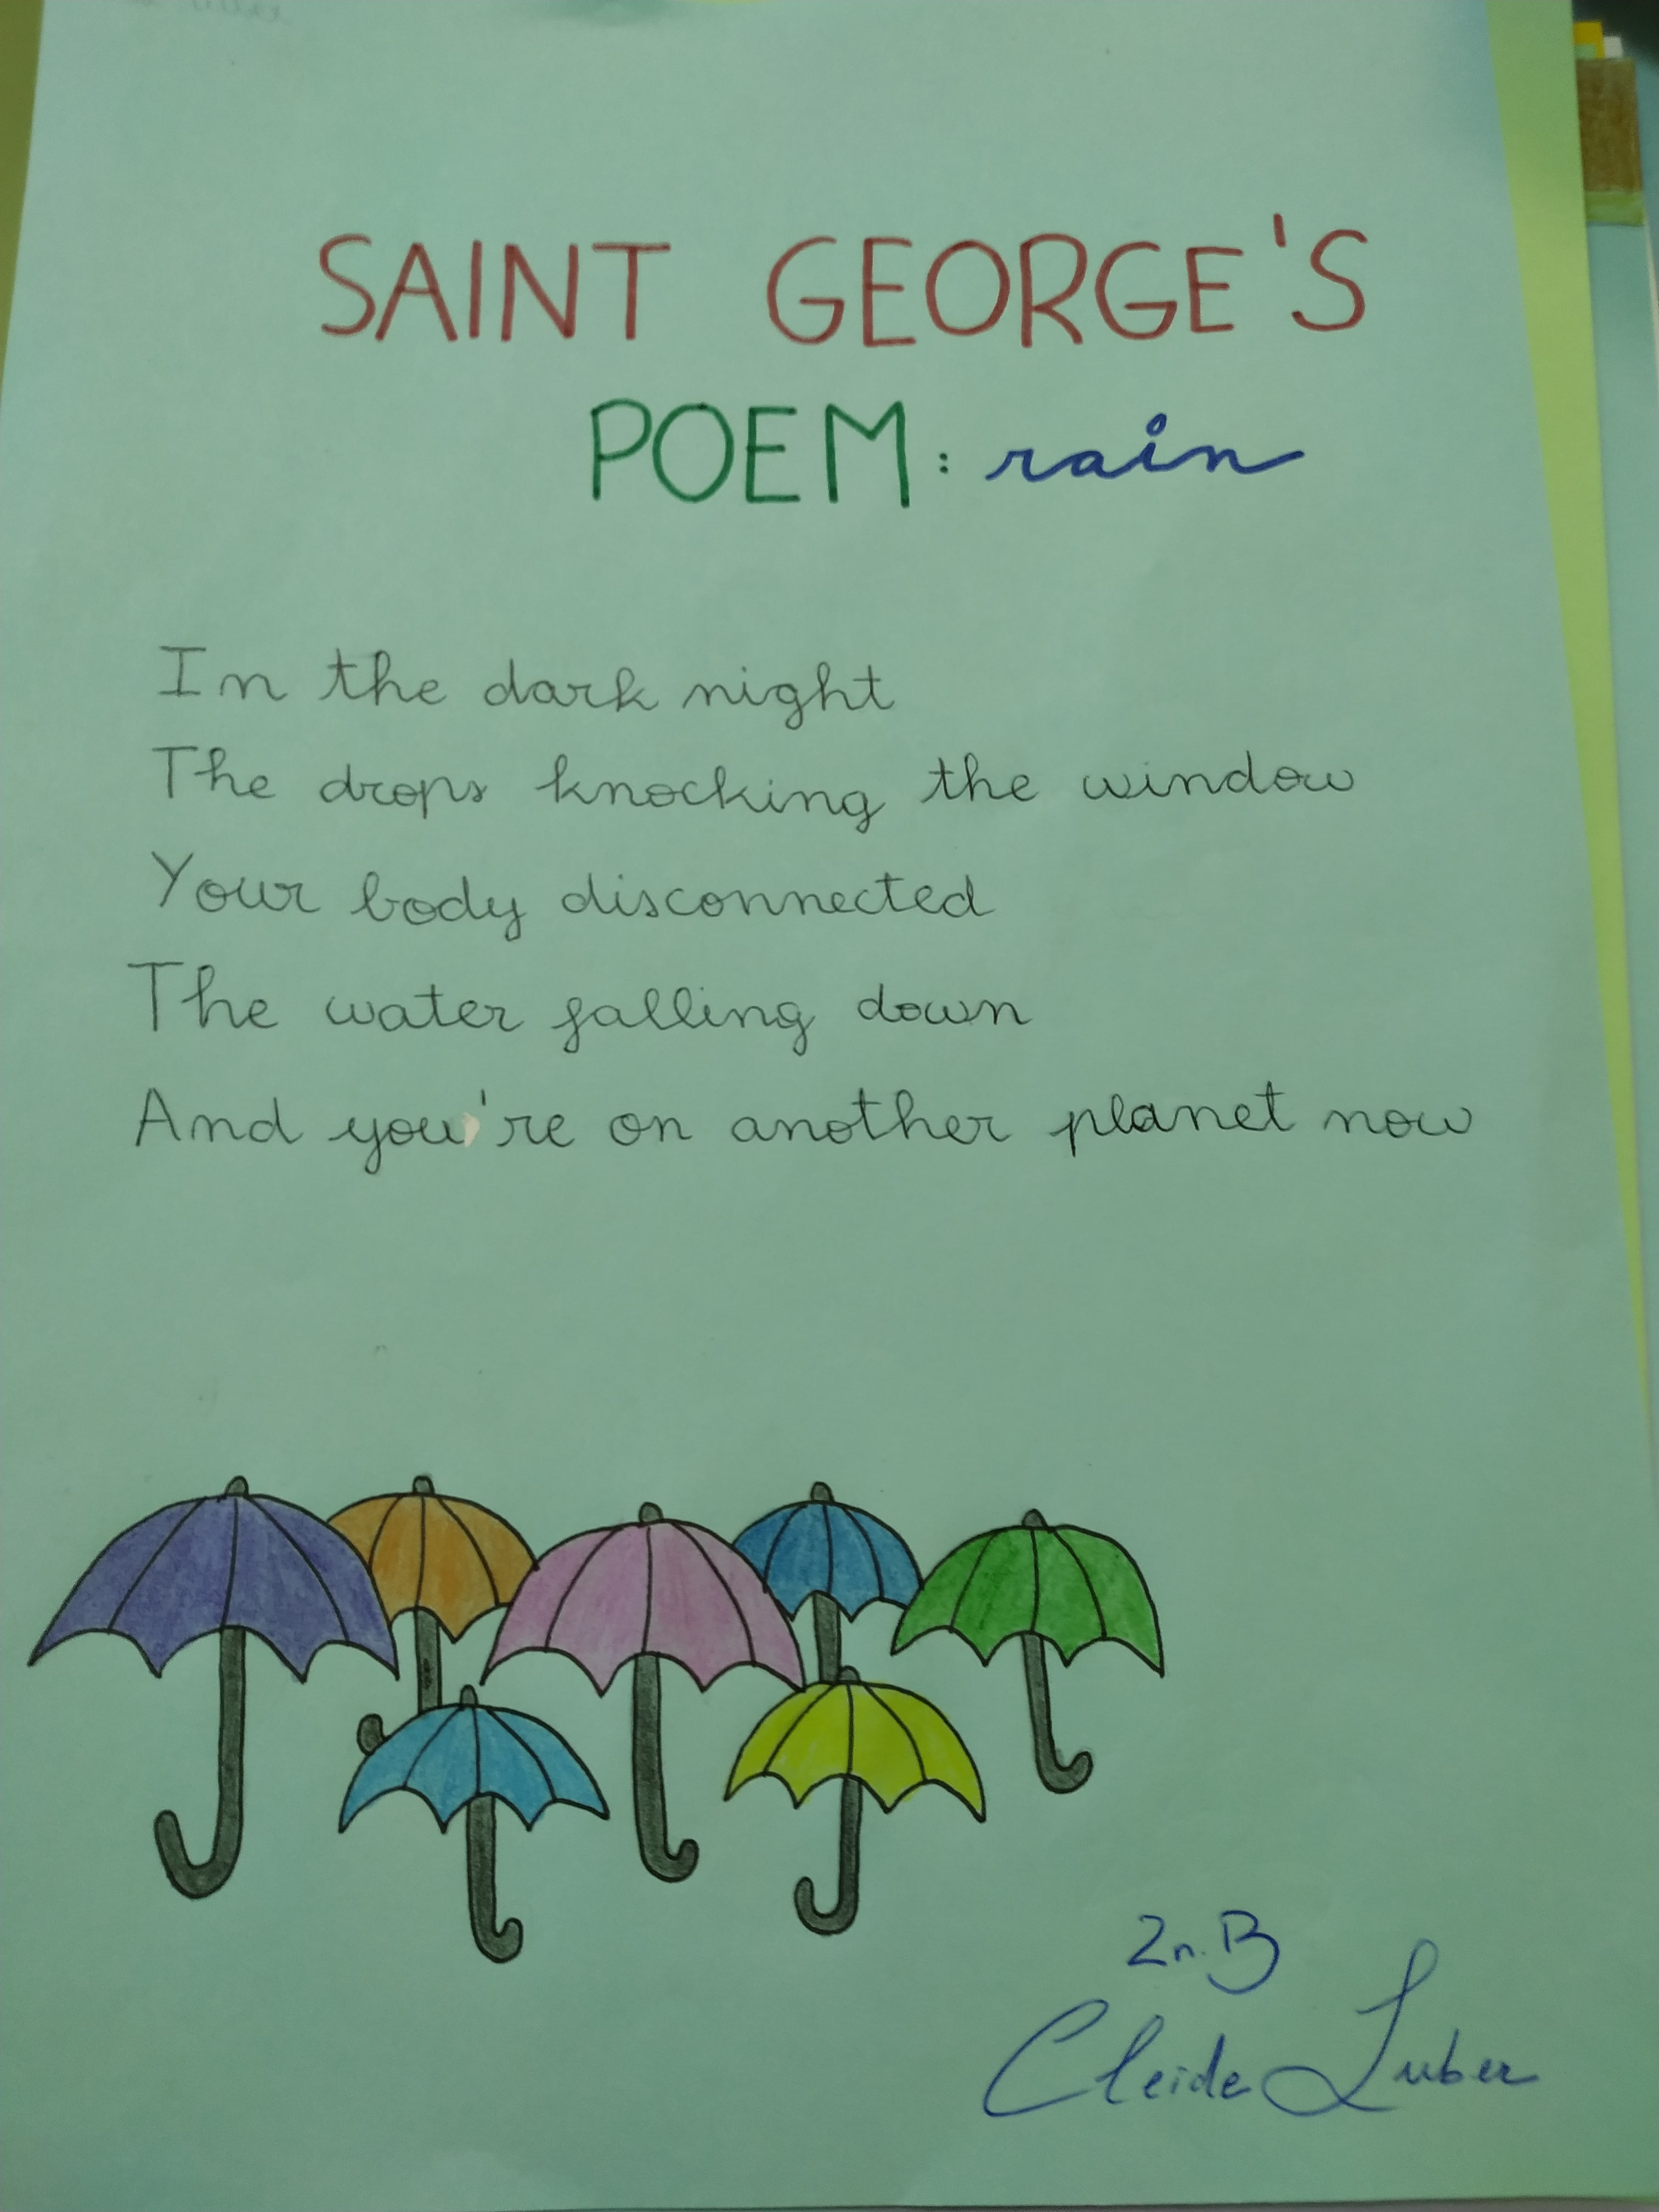 SAINT GEORGE'S
POEM: rain
In the dark night
The drops knocking the window
Your body disconnected
The water falling down
And you're on another planet now
2n. B
Cleide Luber